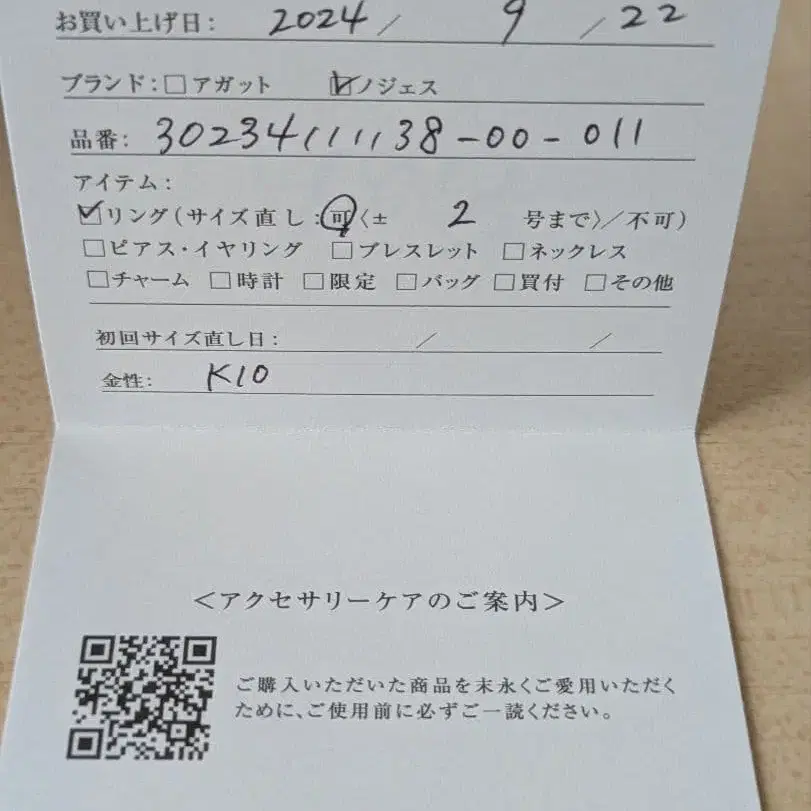 お買い上げ日: 2024 / 9 / 22
ブランド: □アガット ☑ノジェス
品番: 30234111138-00-011
アイテム:
☑リング(サイズ直し:可〈± 2 号まで〉/不可)
□ピアス・イヤリング □ブレスレット □ネックレス
□チャーム □時計 □限定 □バッグ □買付 □その他
初回サイズ直し日: / /
金性: K10
<アクセサリーケアのご案内>
ご購入いただいた商品を末永くご愛用いただく
ために、ご使用前に必ずご一読ください。